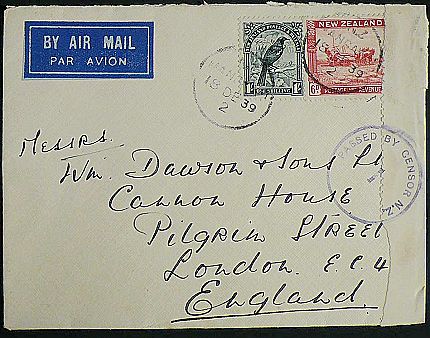 BY AIR MAIL
PAR AVION
NEW ZEALAND
18 DE 39
2
1/-
6D
POSTAGE REVENUE
PASSED BY CENSOR N.Z.
Messrs.
Wm. Dawson & Sons
Cannon House
Pilgrim Street
London. E.C.4
England.